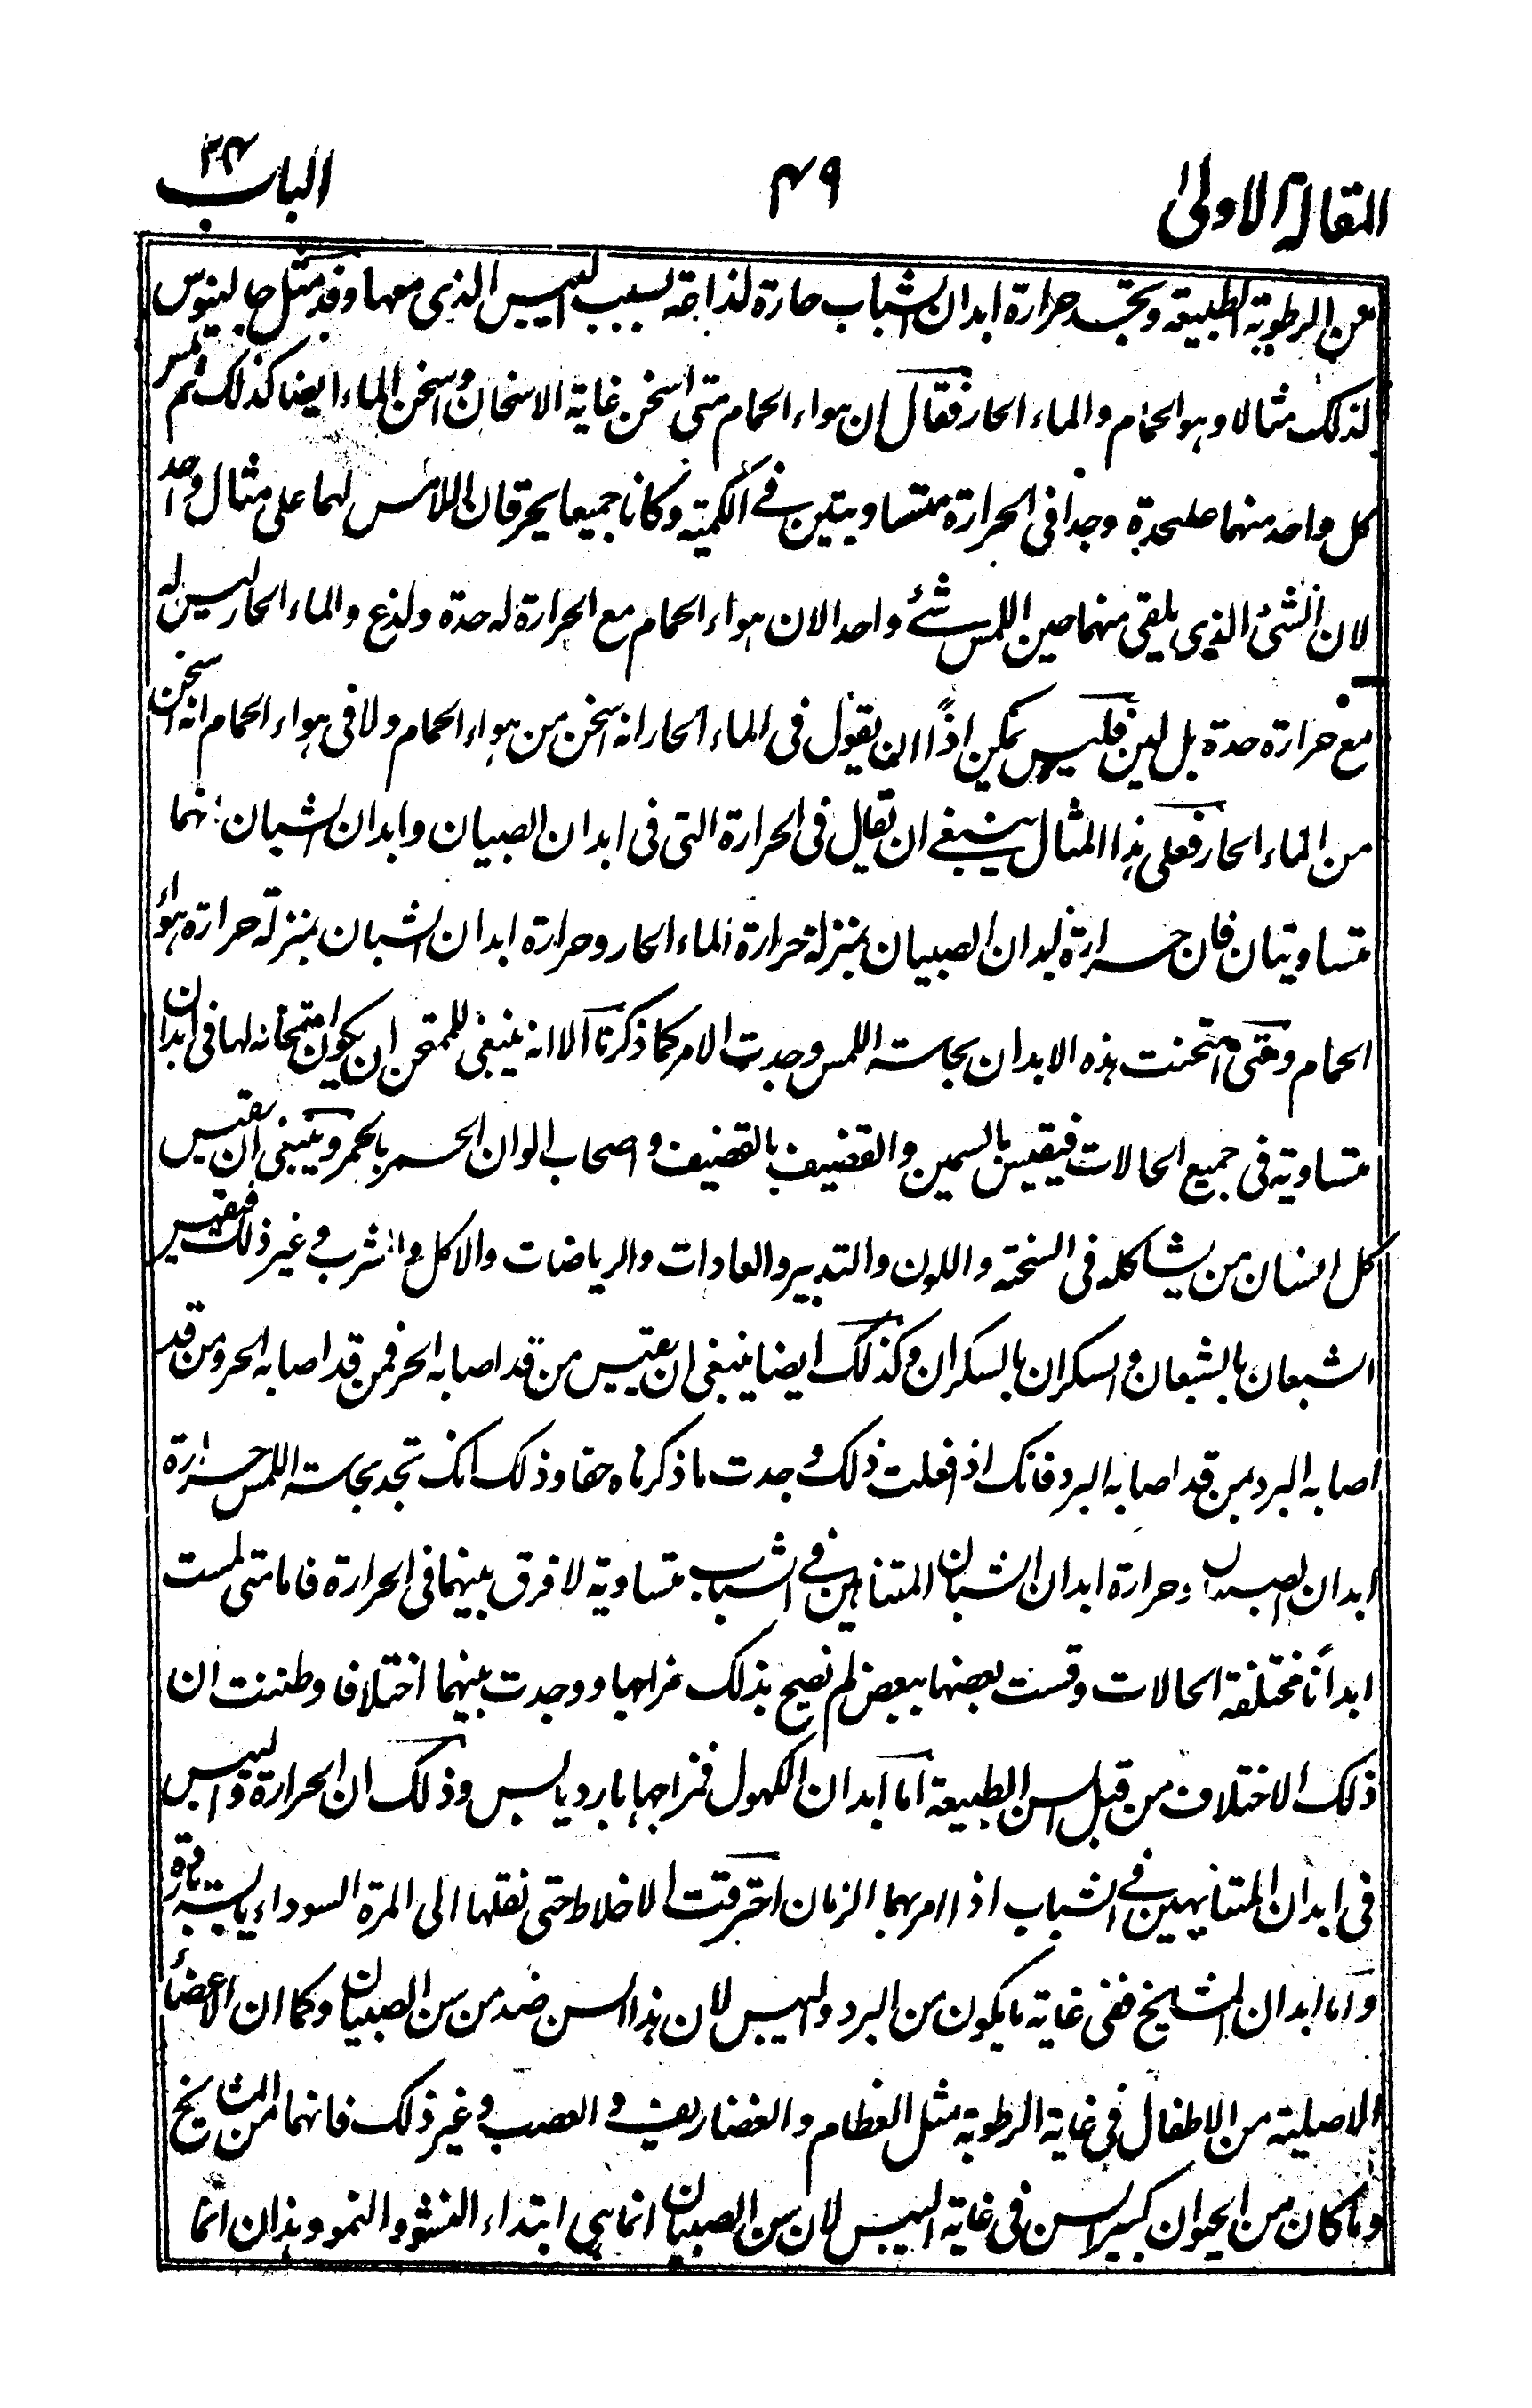 المقالة الاولىٰ
۴۹
الباب ۲۴
من الرطوبة الطبيعة وتجد حرارة ابدان الشباب حارة لذاعة بسبب اليبس الذى معها وقد مثل جالينوس
لذلك مثالا وهو الحمام والماء الحار فقال ان هواء الحمام متى اسخن غاية الاسخان واسخن الماء ايضا كذلك ثم لمس
كل واحد منهما علىحدة وجدا فى الحرارة متساويتين فے الكمية وكانا جميعا يحرقان اللامس لهما على مثال واحد
لان الشئ الذى يلقى منهما حين اللمس شئے واحد الا ان هواء الحمام مع الحرارة له حدة ولذع والماء الحار ليس له
مع حرارة حدة بل لين فليس يمكن اذًا ان يقول فى الماء الحار انه اسخن من هواء الحمام ولا فى هواء الحمام انه اسخن
من الماء الحار فعلى هذا المثال ينبغے ان تقال فى الحرارة التى فى ابدان الصبيان وابدان الشبان انهما
متساويتان فان حرارة ابدان الصبيان بمنزلة حرارة الماء الحار وحرارة ابدان الشبان بمنزلة حرارة هواء
الحمام ومتى امتحنت هذه الابدان بحاسة اللمس وجدت الامر كما ذكرنا الا انه ينبغى للممتحن ان يكون امتحانه لها فى ابدان
متساوية فى جميع الحالات فيقيس بالسمين والقضيف بالقضيف واصحاب الوان الحمر بالحمر وينبغى ان يقيس
كل انسان من يشاكله فى السخنة واللون والتدبير والعادات والرياضات والاكل والشرب وغير ذلك فيقيس
الشبعان بالشبعان والسكران بالسكران وكذلك ايضا ينبغى ان يقيس من قد اصابه الحر فمن قد اصابه الحر ومن قد
اصابه البرد بمن قد اصابه البرد فانك اذ افعلت ذلك وجدت ما ذكرناه حقا وذلك انك تجد بحاسة اللمس حرارة
ابدان الصبيان وحرارة ابدان الشبان المتناهين فے الشباب متساوية لا فرق بينهما فى الحرارة فاما متى لمست
ابدانًا مختلفة الحالات وقست بعضها ببعض لم نصيح بذلك مزاجها ووجدت بينهما اختلافا وظننت ان
ذلك الاختلاف من قبل السن الطبيعة اما ابدان الكهول فمزاجها بارد يابس وذلك ان الحرارة واليبس
فى ابدان المتناهين فے الشباب اذا مر بهما الزمان احترقت الاخلاط حتى نقلها الى المرة السوداء يابسة باردة
واما ابدان المشايخ ففى غاية ما يكون من البرد واليبس لان هذا السن ضد من سن الصبيان وكما ان الاعضاء
الاصلية من الاطفال فى غاية الرطوبة مثل العظام والغضاريف والعصب وغير ذلك فانهما من المشايخ
وما كان من الحيوان كبير السن فى غاية اليبس لان سن الصبيان انما هى ابتداء النشو والنمو وهذان انما